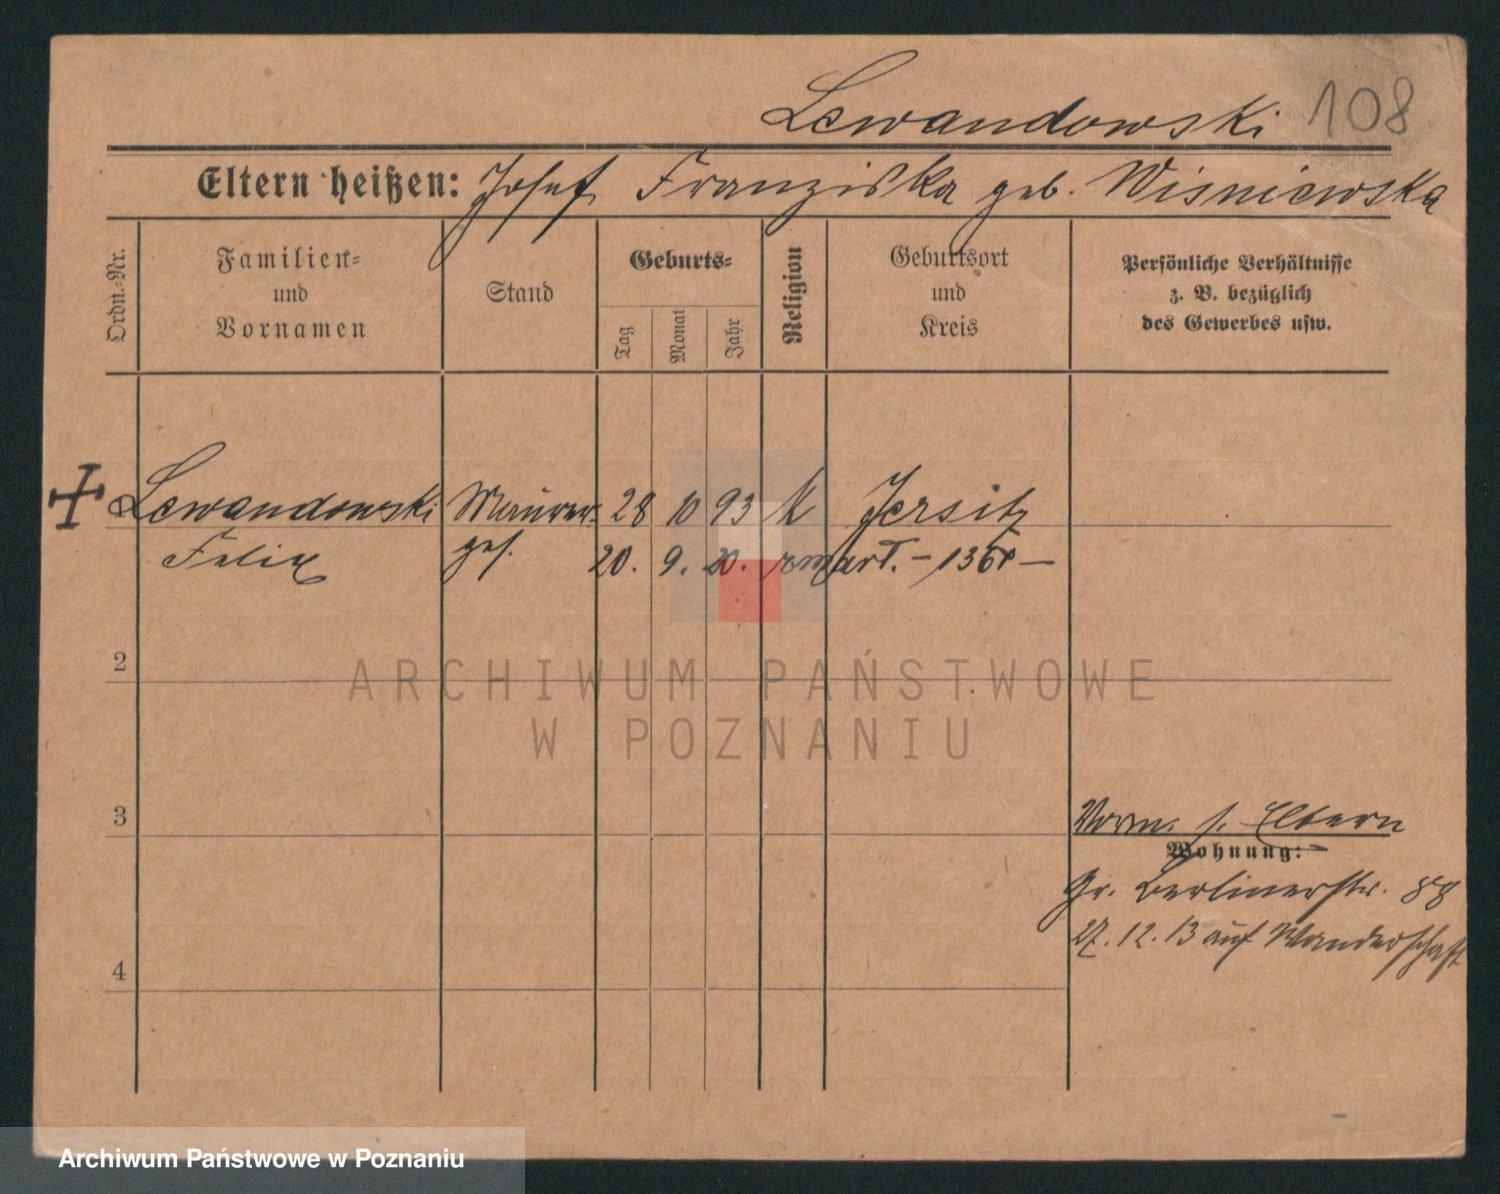 Lewandowski 108
Eltern heißen: Josef Franziska geb. Wisniewska
Ordn.-Nr.
Familien-
und
Vornamen
Stand
Geburts-
Tag
Monat
Jahr
Religion
Geburtsort
und
Kreis
Persönliche Verhältnisse
z. B. bezüglich
des Gewerbes usw.
Lewandowski Maurer- 28 10 93 K Jersitz
Felix ges. 20. 9. 20. zmarł.
2
ARCHIWUM PAŃSTWOWE
W POZNANIU
3
Vorm. s. Eltern
Wohnung:
Gr. Berlinerstr. 88
27.12.13 auf Wanderschaft
4
Archiwum Państwowe w Poznaniu